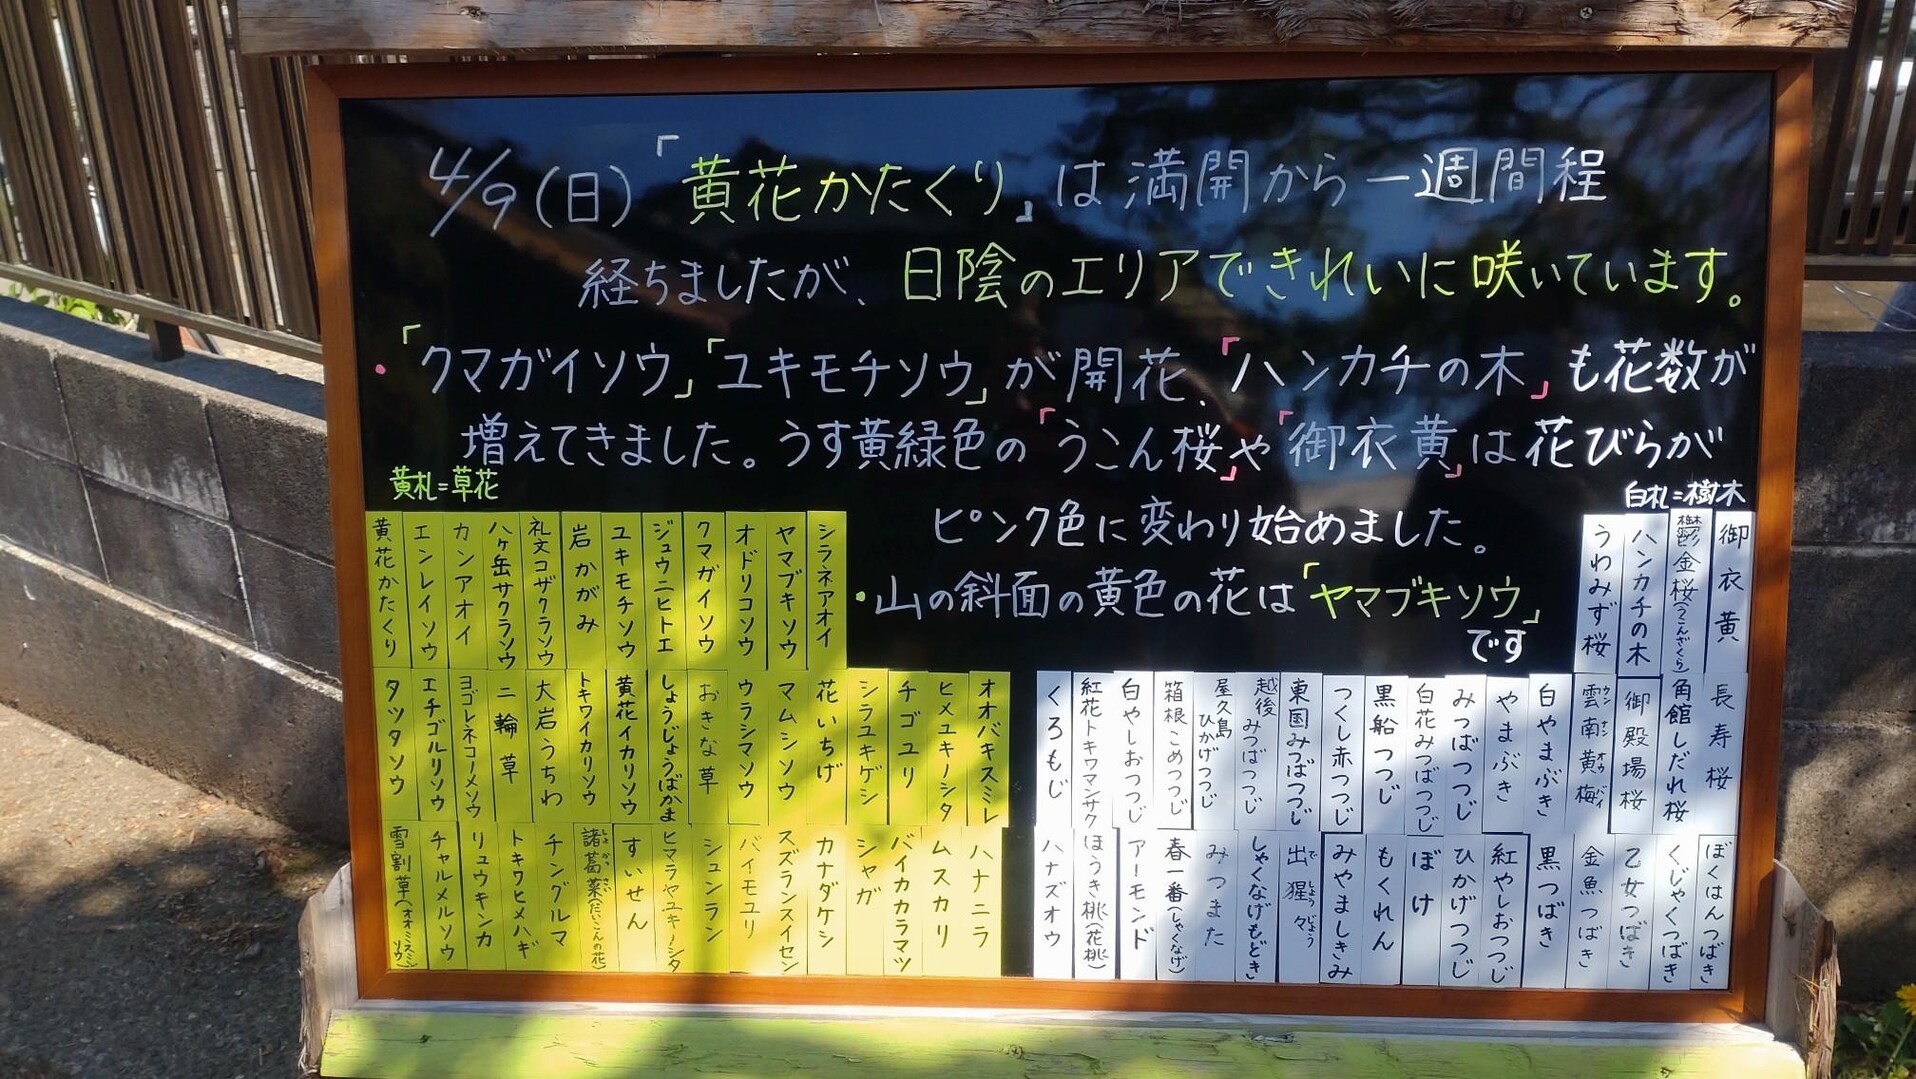 4/9(日)「黄花かたくり」は満開から一週間程
経ちましたが、日陰のエリアできれいに咲いています。
・「クマガイソウ」「ユキモチソウ」が開花、「ハンカチの木」も花数が
増えてきました。うす黄緑色の「うこん桜」や「御衣黄」は花びらが
ピンク色に変わり始めました。
・山の斜面の黄色の花は「ヤマブキソウ」
です
黄札=草花
黄花かたくり
エンレイソウ
カンアオイ
八ヶ岳サクラソウ
礼文コザクラソウ
岩かがみ
ユキモチソウ
ジュウニヒトエ
クマガイソウ
オドリコソウ
ヤマブキソウ
シラネアオイ
タツタソウ
エチゴルリソウ
ヨゴレネコノメソウ
二輪草
大岩うちわ
トキワイカリソウ
黄花イカリソウ
しょうじょうばかま
おきな草
ウラシマソウ
マムシソウ
花いちげ
シラユキゲシ
チゴユリ
ヒメユキノシタ
オオバキスミレ
雪割草(オオミスミソウ)
チャルメルソウ
リュウキンカ
トキワヒメハギ
チングルマ
諸葛菜(だいこんの花)
すいせん
ヒマラヤユキノシタ
シュンラン
バイモユリ
スズランスイセン
カナダケシ
シャガ
バイカカラマツ
ムスカリ
ハナニラ
白札=樹木
御衣黄
鬱金桜(うこんざくら)
ハンカチの木
うわみず桜
長寿桜
角館しだれ桜
御殿場桜
雲南黄梅 ウンナンオウバイ
白やまぶき
やまぶき
みつばつつじ
白花みつばつつじ
黒船つつじ
つくし赤つつじ
東国みつばつつじ
越後みつばつつじ
屋久島ひかげつつじ
箱根こめつつじ
白やしおつつじ
紅花トキワマンサク
くろもじ
ぼくはんつばき
くじゃくつばき
乙女つばき
金魚つばき
黒つばき
紅やしおつつじ
ひかげつつじ
ぼけ
もくれん
みやましきみ
出猩々 でしょうじょう
しゃくなげもどき
みつまた
春一番(しゃくなげ)
アーモンド
ほうき桃(花桃)
ハナズオウ